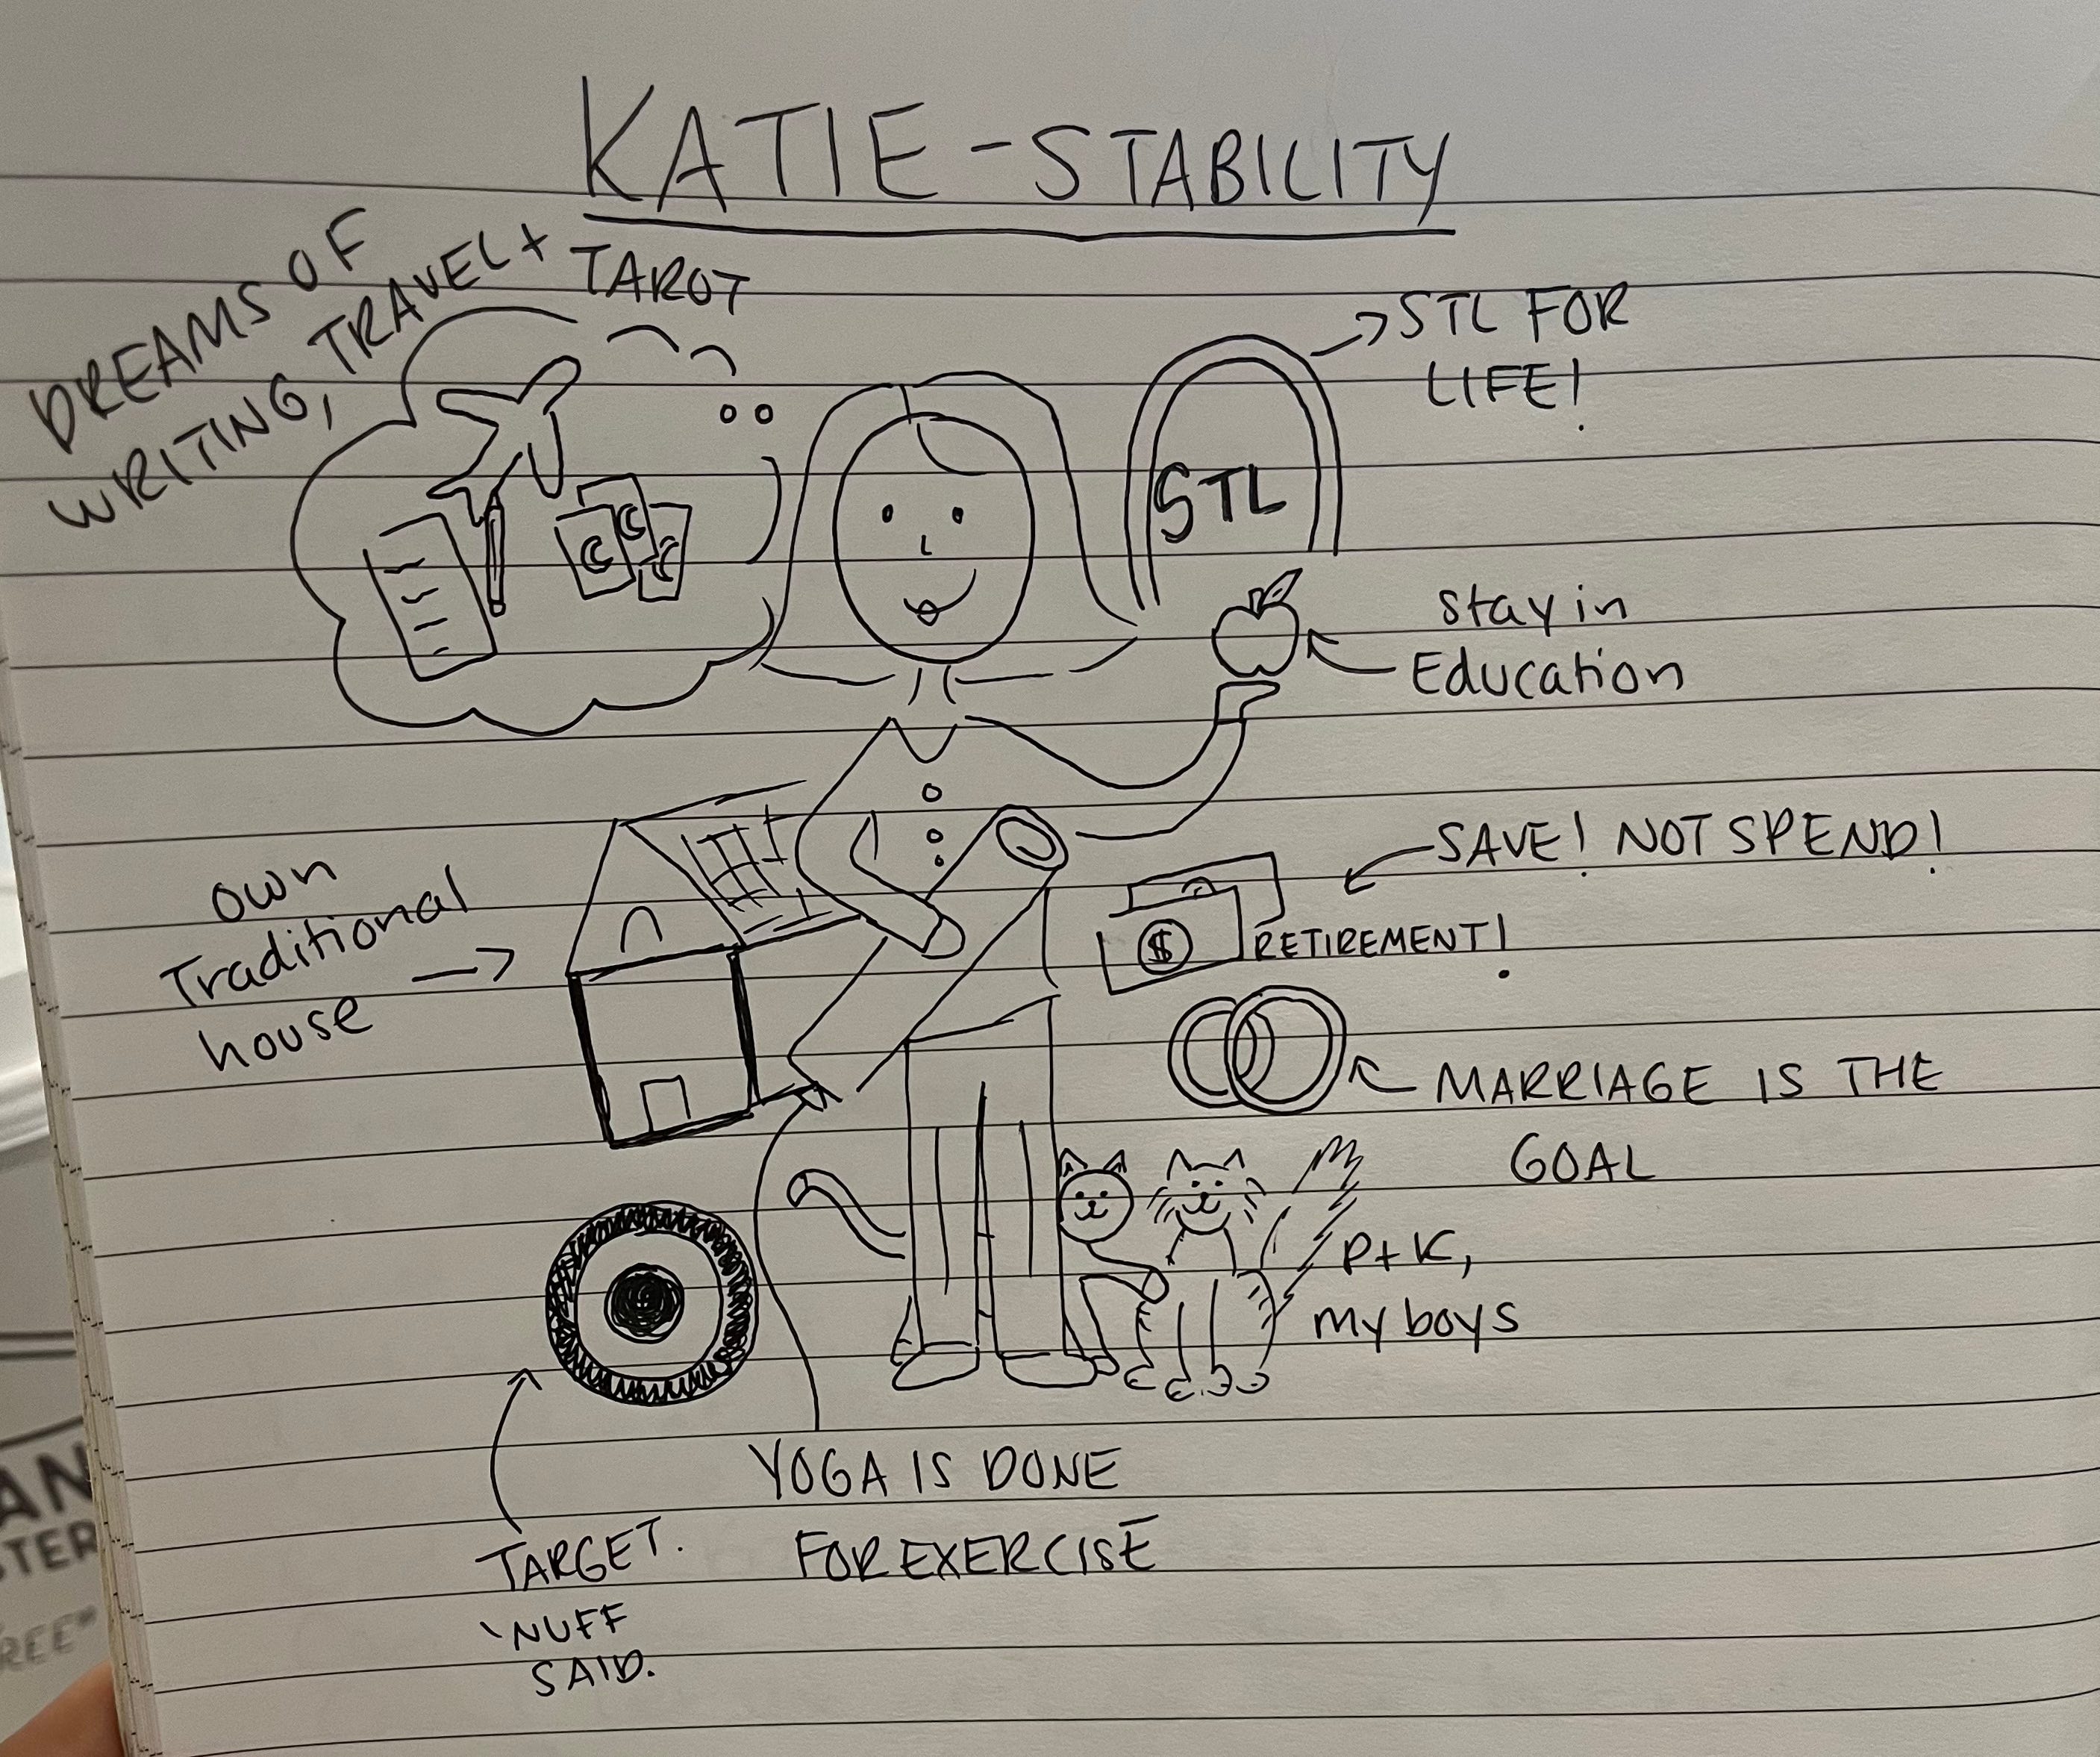 KATIE - STABILITY
DREAMS OF
WRITING, TRAVEL + TAROT
→ STL FOR
LIFE!
STL
stay in
Education
own
Traditional
house →
SAVE! NOT SPEND!
$
RETIREMENT!
MARRIAGE IS THE
GOAL
P+K,
my boys
YOGA IS DONE
FOR EXERCISE
TARGET.
'NUFF
SAID.
AN
STER
REE"